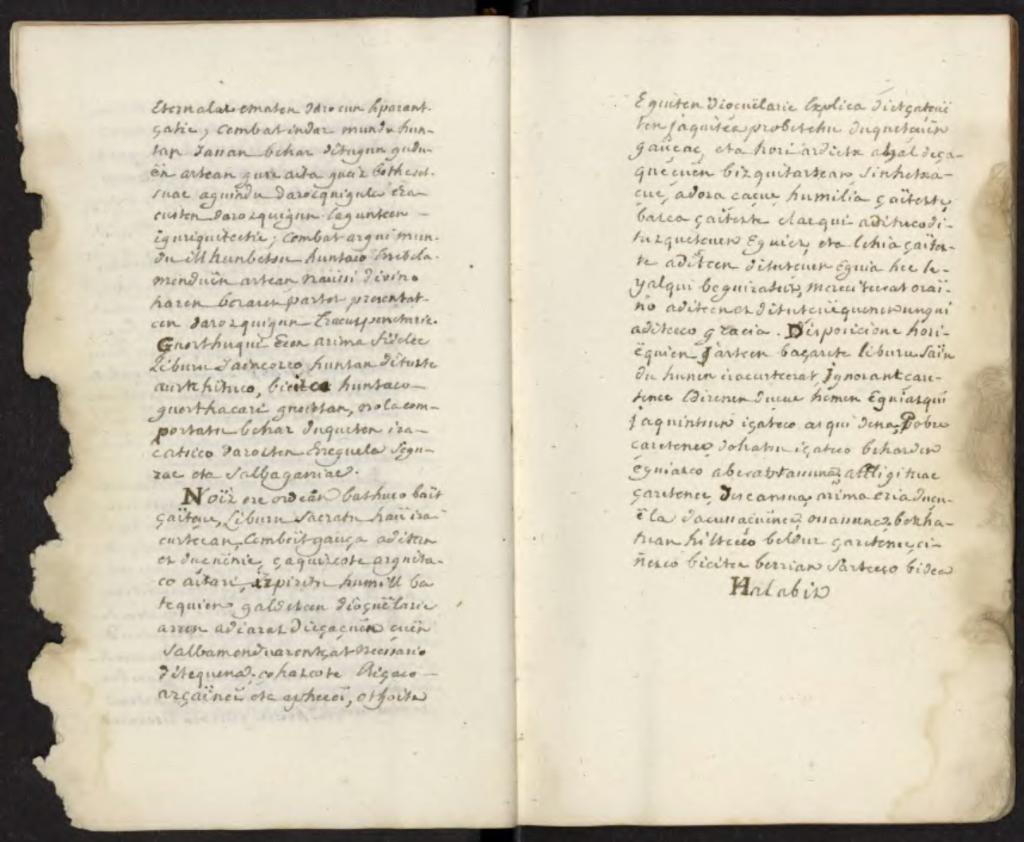 Eternalat ematen darocun hparant-
çatic; Combat indar mundu hun-
tan Janan behar ditugun gudu-
ën artean gure aita
suac aguindu darozquigula era-
custen darozquigun Laguntcen
iguriquitcetic; Combat argui mun-
du ill hunbetsu huntaco
menduën artean naüssi divino
haren beraren partez presentat-
cen darozquigun
Gnorthuqui ecen arima fidelec
Liburu Jaincozco huntan dituzte
aurkhituco, bicitce huntaco
guerthacari gucietan, nola com-
portatu behar duqueten ira-
catsico daroten Erreguela Segu-
rac eta Salbagarriac.
Noiz ere ordeän bathuco bait
çaitçue, Liburu Sacratu haü ira
curtcean, Cembeit gauça aditcen
ez duenenic, çaquizcote arguita-
co aitari, izpiritu humill ba
tequien galdetcen dioçuëlaric
arren adiaraz dieçaçuën cuën
Salbamenduarentçat necessario
ditequena. eçohazcote Elicaco
arçaïnei eta aphecei, othoitz
Eguiten dioçuëlaric Explica dietçatçuei
ten jaquitea probetchu duqueçuën
gauçac, eta hori ardietx ahal deça-
queçuën bizquitartean Sinhetxa-
çue, adora çaçue humilia çaitezte,
barca çaitezte elas qui adituco di-
tuzqueçuen Eguiez, eta Lehia çaitez-
te aditcen dituçuen Eguia hec le-
yalqui beguiratuz, mereciteceat oraï-
no aditcen ez dituçuequenen ungui
aditceco gracia. Disposicione hori-
ëquien Jartcen baçarete liburu Sain
du hunen iracurtcerat Ignorant çare-
tenec Edirenen duçue hemen Eguiazqui
jaquintsun içateco arqui dena, Pobre
çaretenec dohatsu içateco behar den
eguiazco aberastasuna, affligituac
çaretenec, Descansua, arima eria duçu-
ëla daçussaçuënec, ossassunez, bezha-
tuan hiltceco beldur çaretenec, ci-
ñezco bicitce berrian Sartceco bidea
Halabiz